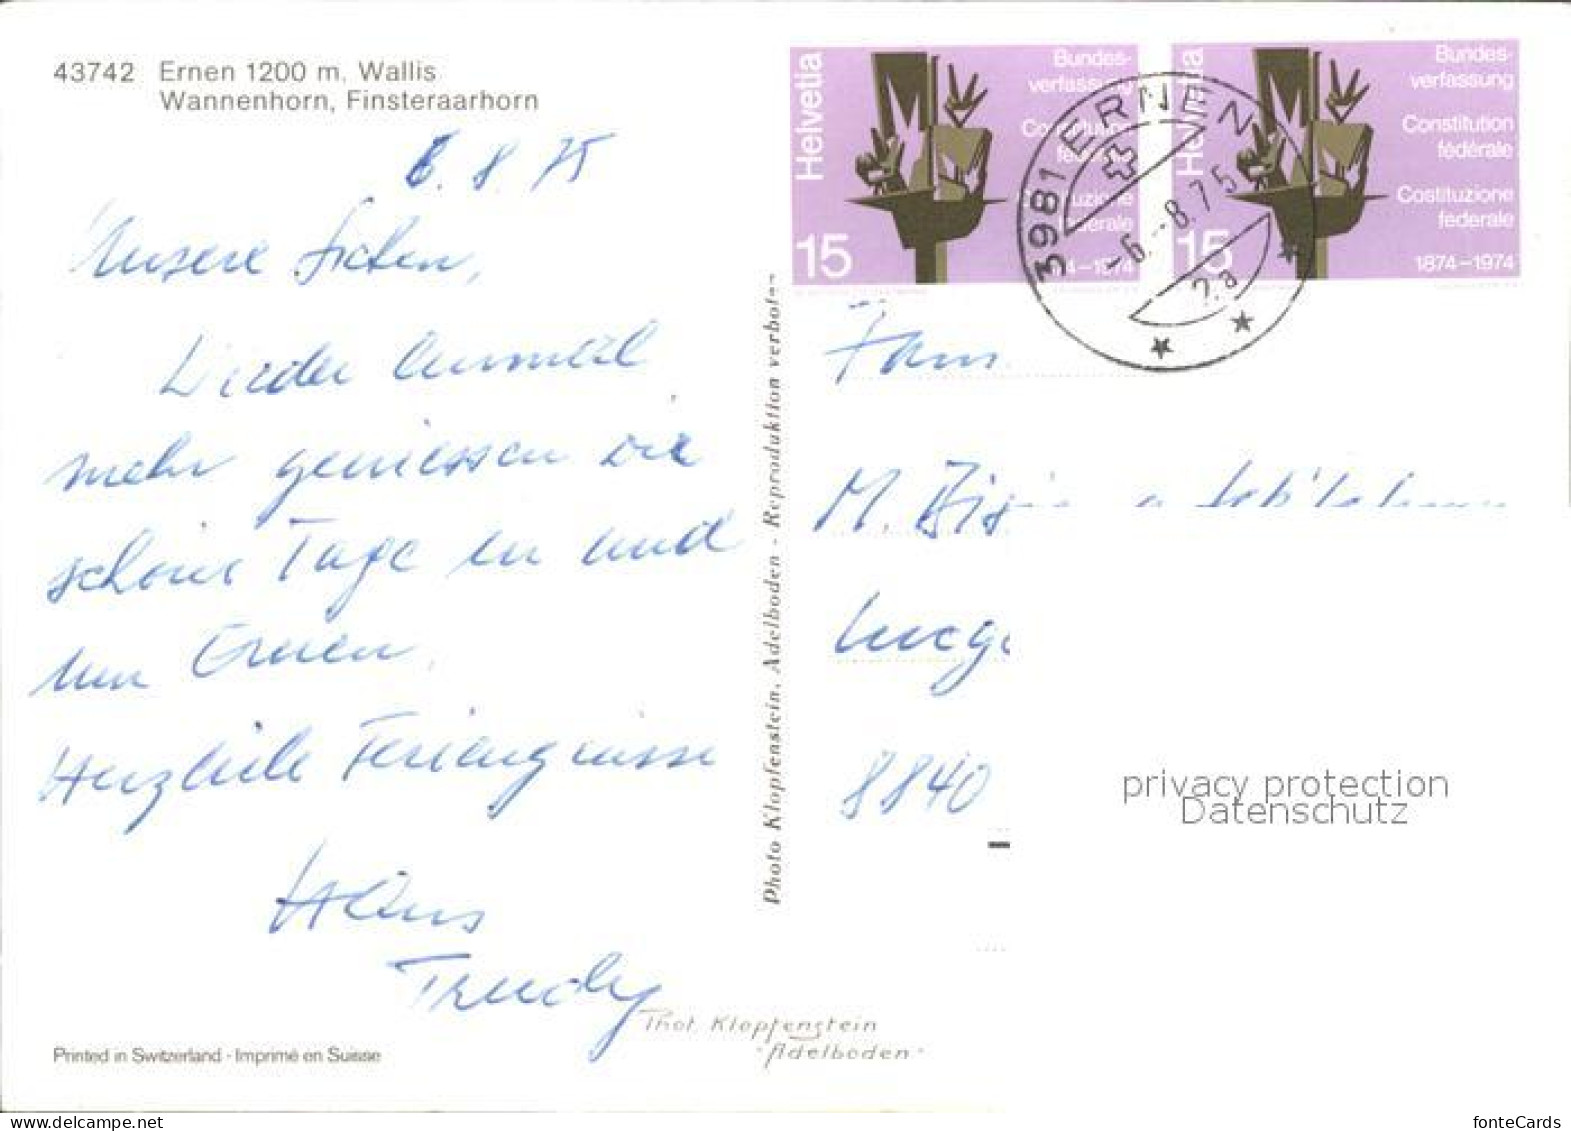 43742 Ernen 1200 m. Wallis
Wannenhorn, Finsteraarhorn
6.8.75
Unsere Lieben,
Wieder einmal
mehr geniessen wir
schöne Tage in und
um Ernen.
Herzliche Feriengrüsse
Hans
Trudy
Printed in Switzerland · Imprimé en Suisse
Phot. Klopfenstein
"Adelboden"
Photo Klopfenstein, Adelboden - Reproduktion verboten
Helvetia
15
Bundes-
verfassung
Constitution
fédérale
Costituzione
federale
1874–1974
Helvetia
15
Bundes-
verfassung
Constitution
fédérale
Costituzione
federale
1874–1974
3981 ERNEN
-6.-8.75
Fam.
M.
8840
privacy protection
Datenschutz
fonteCards